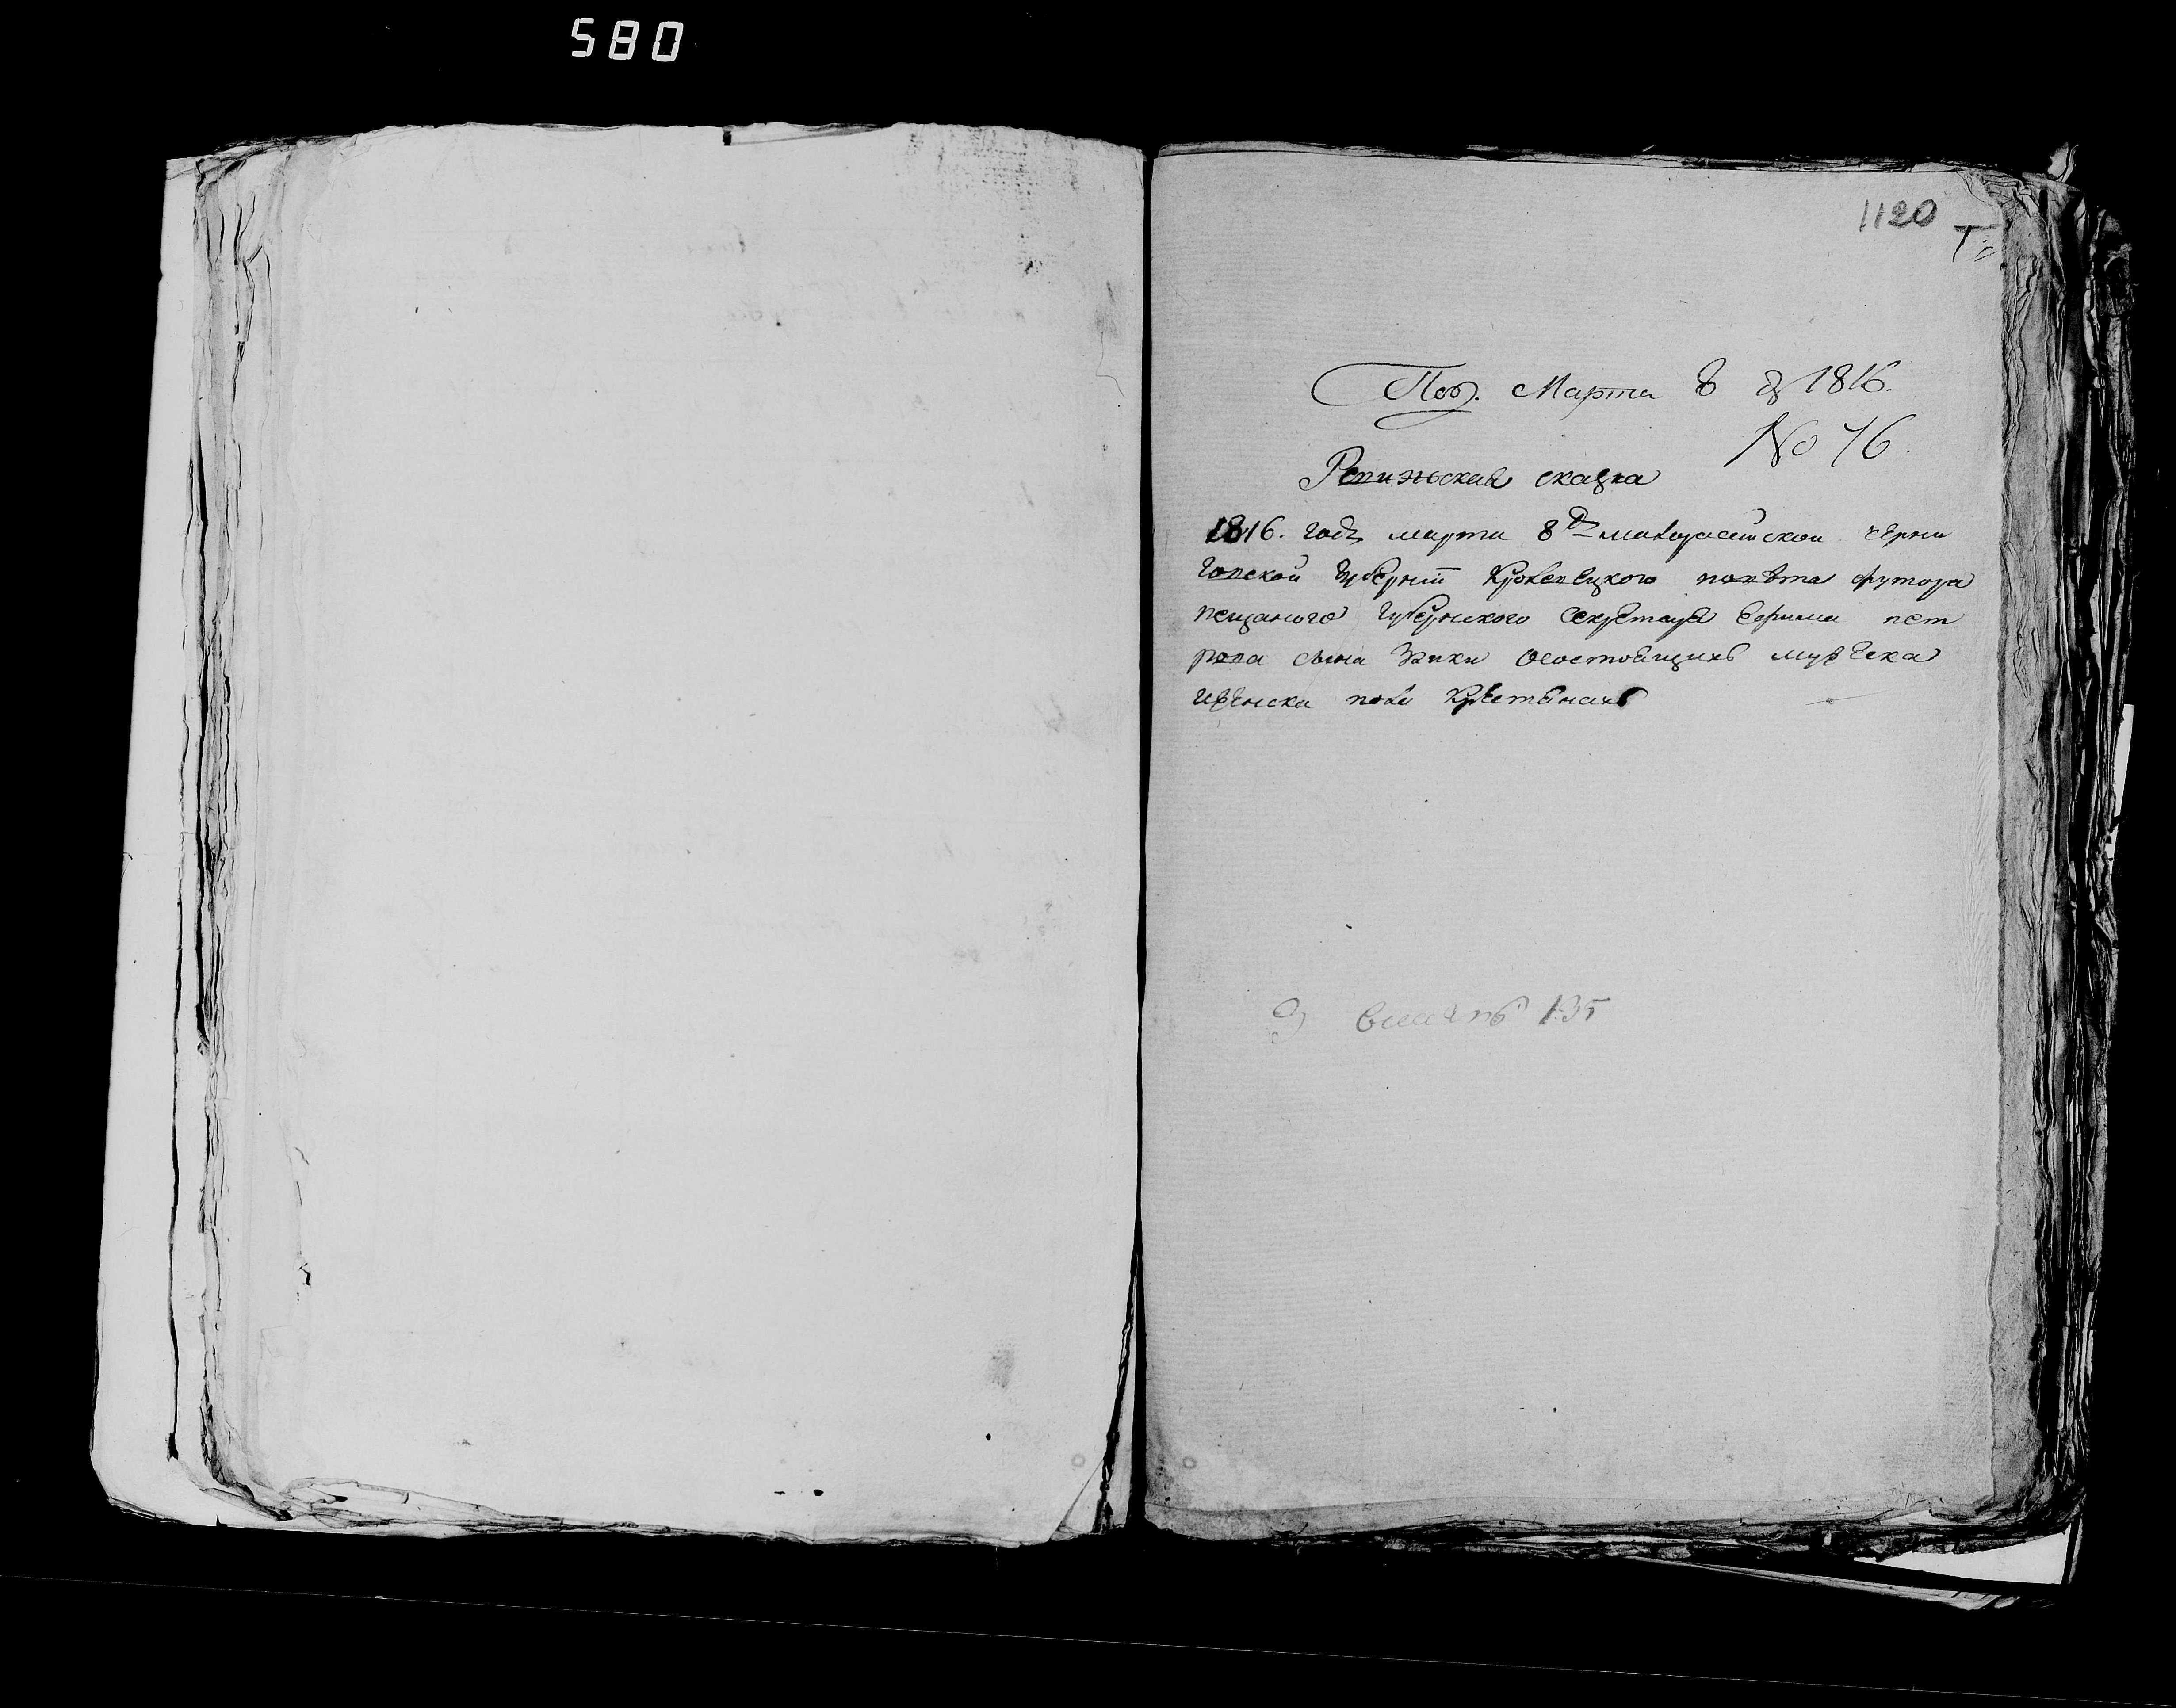 580
1120
Под. Марта 8 д 1816.
No 76.
Ревизьская сказка
1816. годъ марта 8 д малоросийской черни
говской губерний Кролевецкого повѣта футора
пещаного губернского секретара Ефима пет
рова сына осостоящихъ мужеска
иженска пола крестянахъ
135